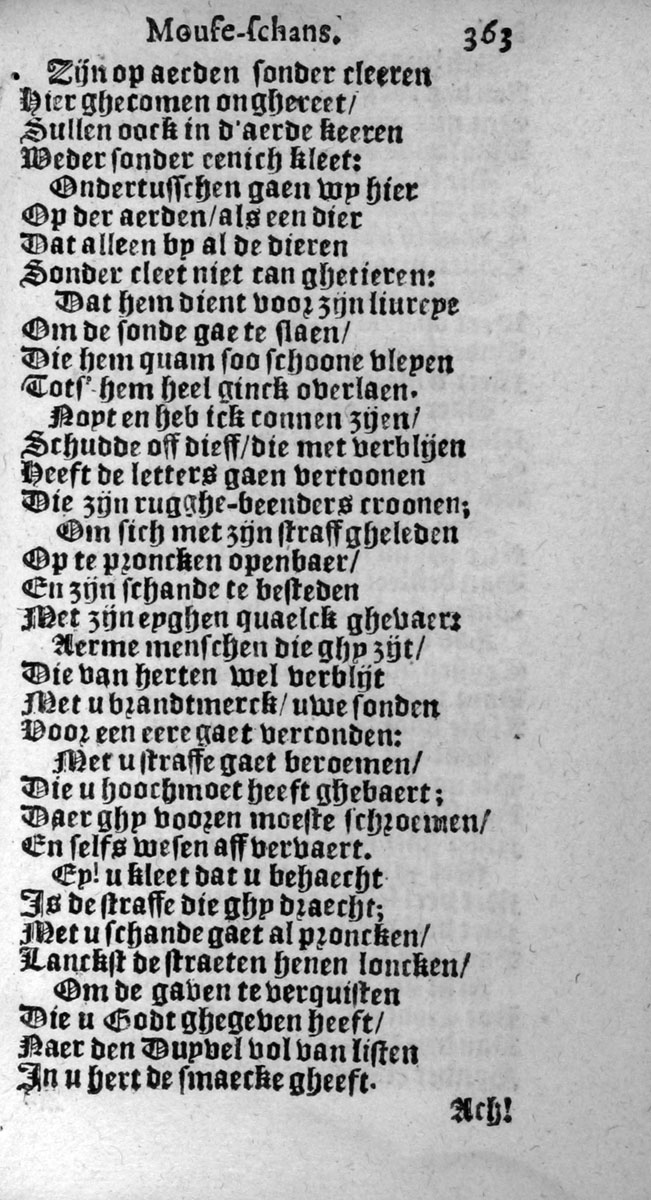 Mouse-schans. 363
Zijn op aerden sonder cleeren
Hier ghecomen onghereet/
Sullen oock in d'aerde keeren
Weder sonder eenich kleet:
Ondertusschen gaen wy hier
Op der aerden/als een dier
Dat alleen by al de dieren
Sonder cleet niet can ghetieren:
Dat hem dient voor zijn liureye
Om de sonde gae te slaen/
Die hem quam soo schoone vleyen
Tots' hem heel ginck overlaen.
Noyt en heb ick connen zijen/
Schudde off dieff/die met verblijen
Heeft de letters gaen vertoonen
Die zijn rugghe-beenders croonen;
Om sich met zijn straff gheleden
Op te proncken openbaer/
En zijn schande te besteden
Met zijn eyghen quaelck ghevaer:
Aerme menschen die ghy zijt/
Die van herten wel verblijt
Met u brandtmerck/uwe sonden
Voor een eere gaet verconden:
Met u straffe gaet beroemen/
Die u hoochmoet heeft ghebaert;
Daer ghy vooren moeste schroemen/
En selfs wesen aff vervaert.
Ey! u kleet dat u behaecht
Is de straffe die ghy draecht;
Met u schande gaet al proncken/
Lanckst de straeten henen loncken/
Om de gaven te verquisten
Die u Godt ghegeven heeft/
Naer den Duyvel vol van listen
In u hert de smaecke gheeft.
Ach!